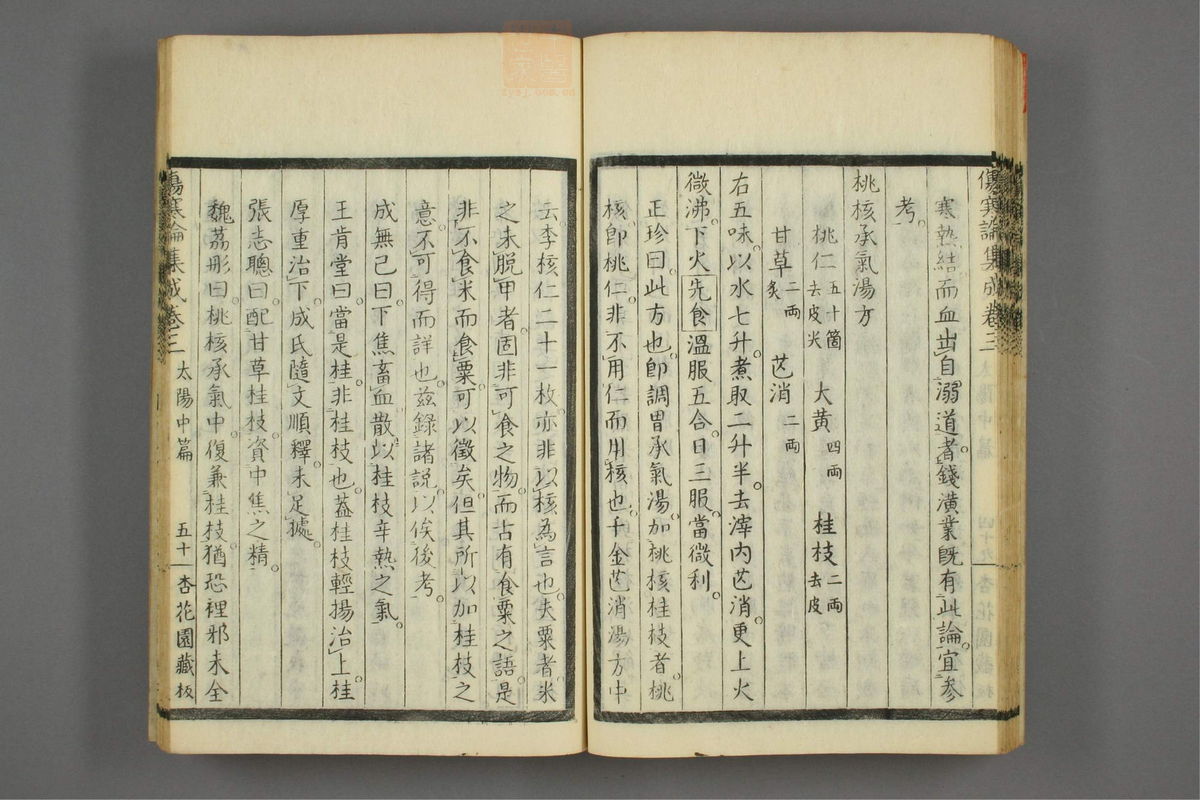 傷寒論集成卷三
寒熱結而血出自溺道者錢潢業既有此論宜參
考
桃核承氣湯方
桃仁五十箇去皮尖 大黃四兩 桂枝二兩去皮
甘草二兩炙 芒消二兩
右五味以水七升煮取二升半去滓內芒消更上火
微沸下火先食溫服五合日三服當微利
正珍曰此方也卽調胃承氣湯加桃核桂枝者桃
核卽桃仁非不用仁而用核也千金芒消湯方中
云李核仁二十一枚亦非以核為言也夫粟者米
之未脫甲者固非可食之物而古有食粟之語是
非不食米而食粟可以徵矣但其所以加桂枝之
意不可得而詳也茲錄諸說以俟後考
成無己曰下焦畜血散以桂枝辛熱之氣
王肯堂曰當是桂非桂枝也蓋桂枝輕揚治上桂
厚重治下成氏隨文順釋未足據
張志聰曰配甘草桂枝資中焦之精
魏荔彤曰桃核承氣中復兼桂枝猶恐裡邪未全
傷寒論集成卷三 太陽中篇 五十 杏花園藏板